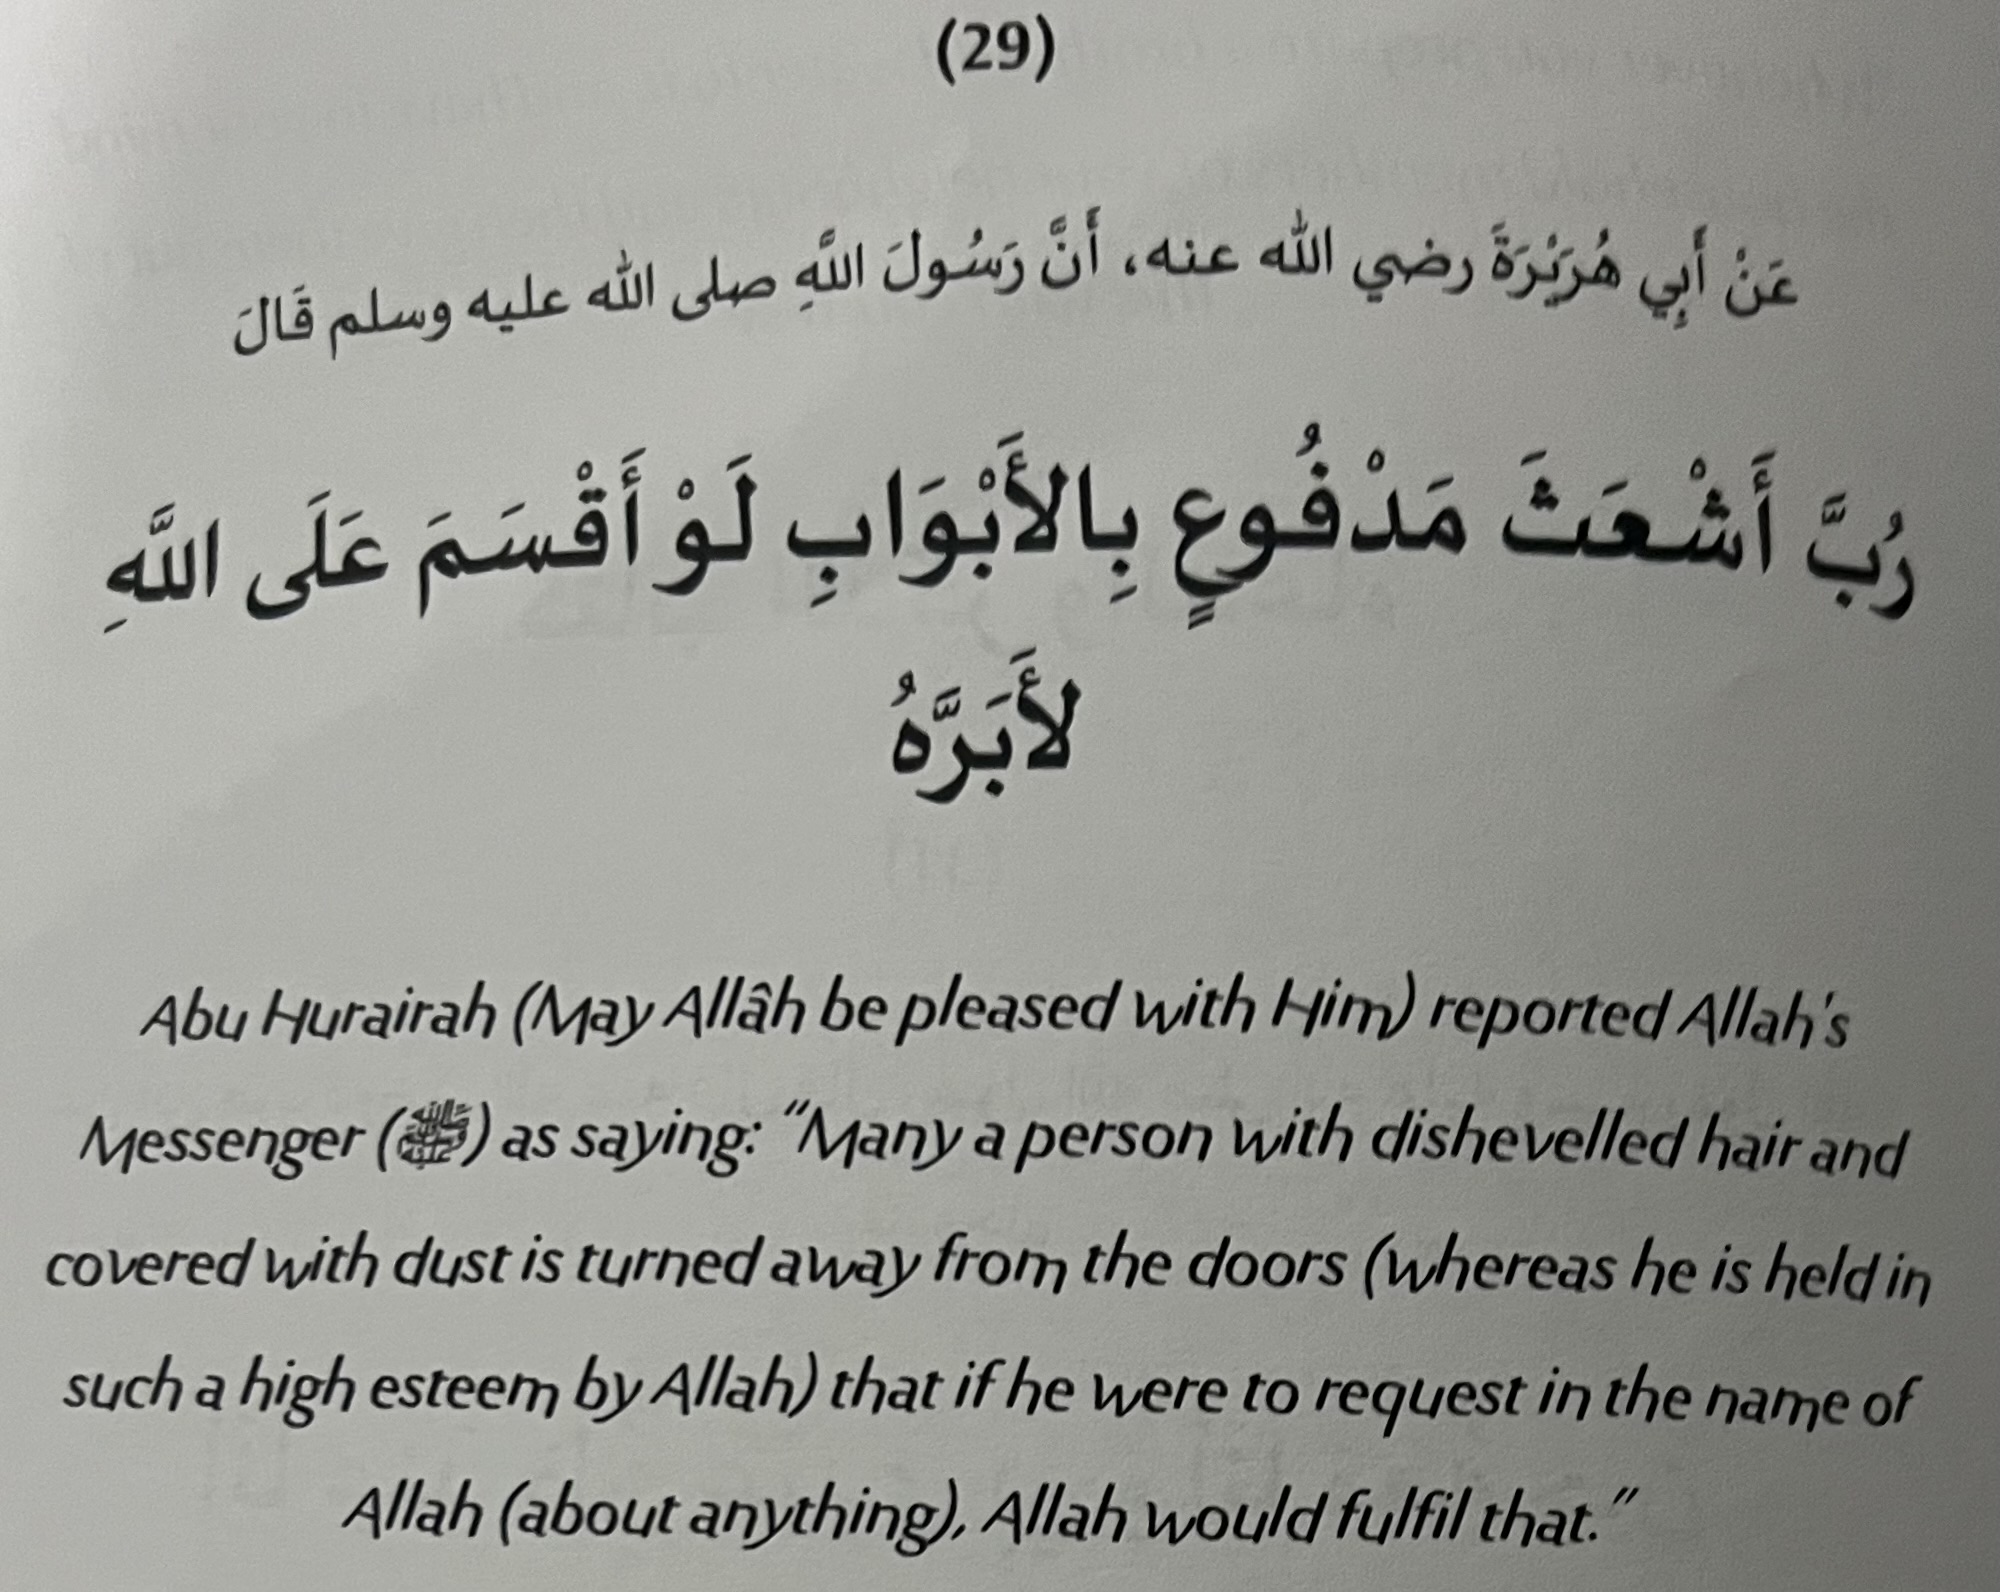 (29)
عَنْ أَبِي هُرَيْرَةَ رضي الله عنه، أَنَّ رَسُولَ اللَّهِ صلى الله عليه وسلم قَالَ
رُبَّ أَشْعَثَ مَدْفُوعٍ بِالأَبْوَابِ لَوْ أَقْسَمَ عَلَى اللَّهِ
لأَبَرَّهُ
Abu Hurairah (May Allâh be pleased with Him) reported Allah's
Messenger (ﷺ) as saying: “Many a person with dishevelled hair and
covered with dust is turned away from the doors (whereas he is held in
such a high esteem by Allah) that if he were to request in the name of
Allah (about anything), Allah would fulfil that.”